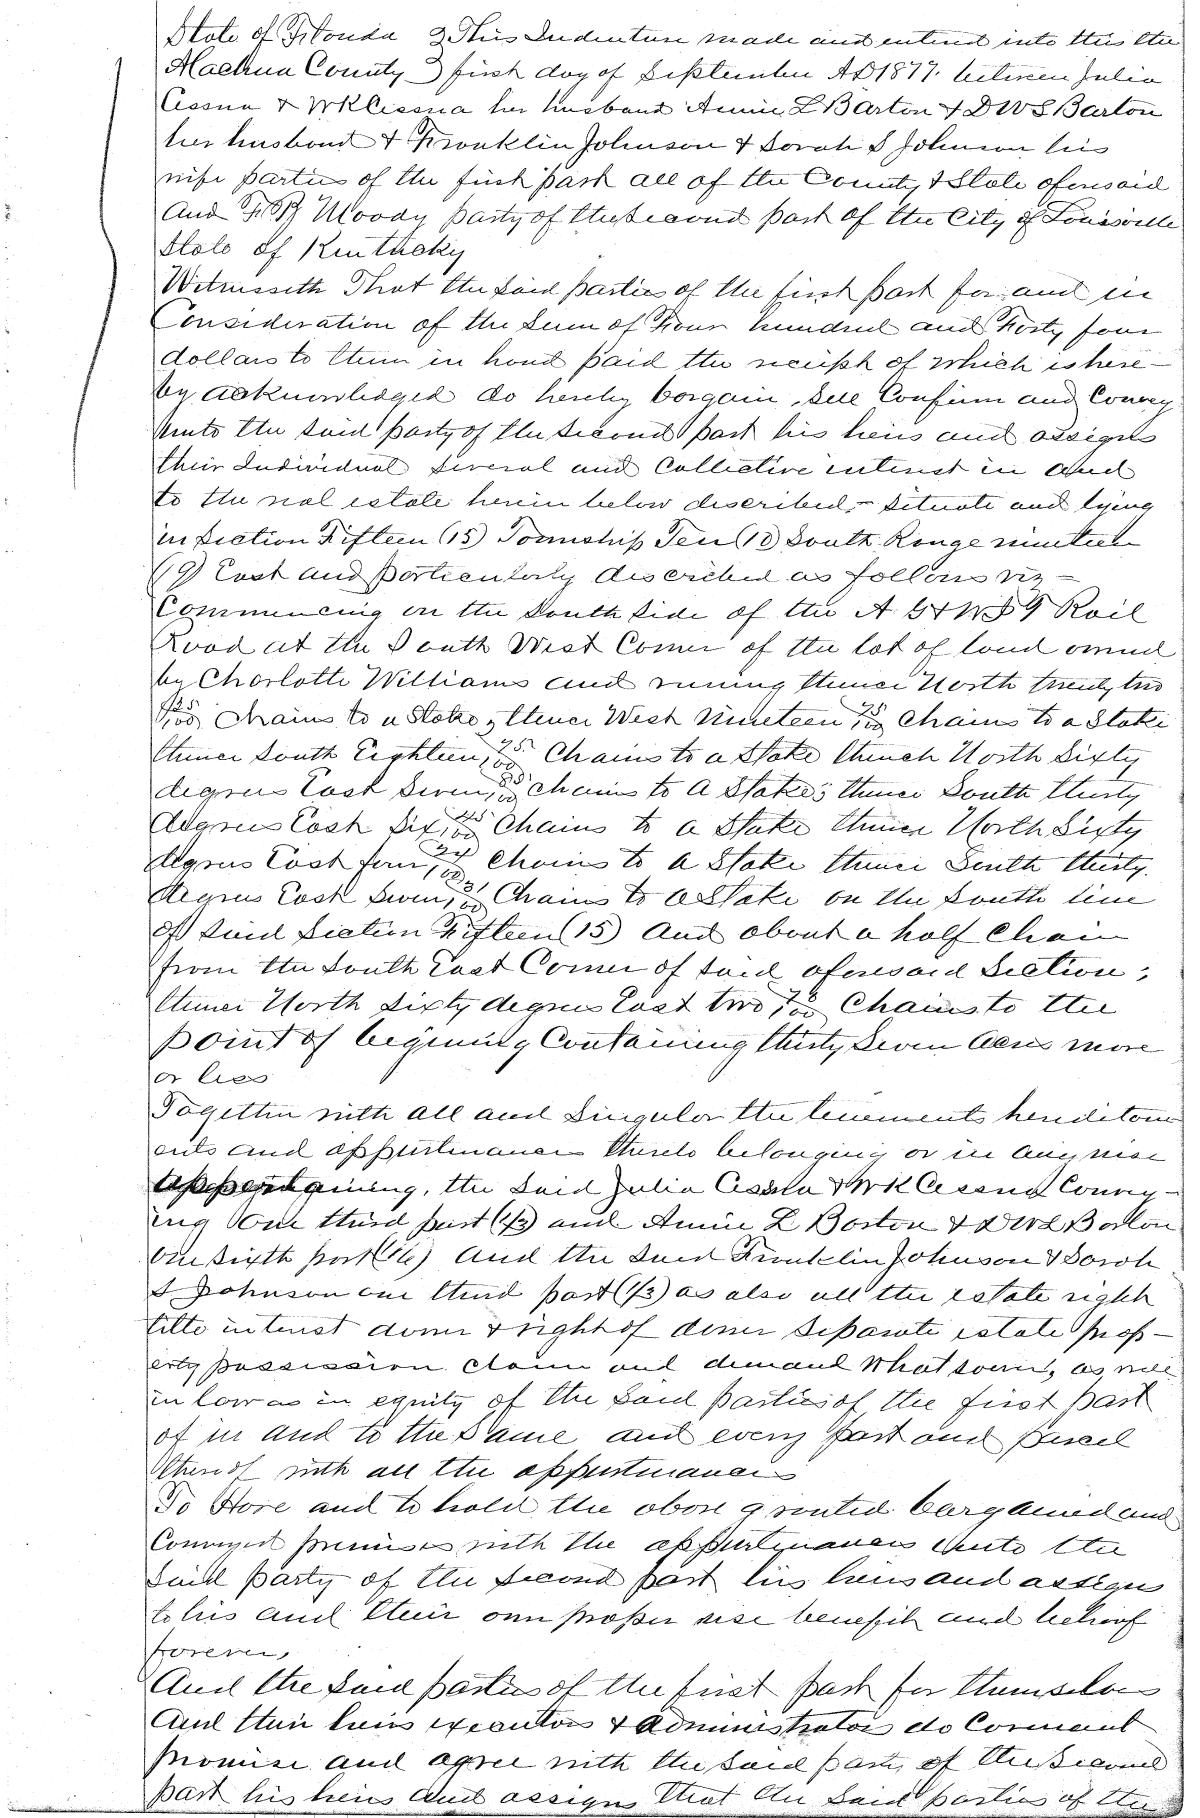 State of Florida } This Indenture made and entered into this the
Alachua County } first day of September AD 1877. between Julia
Cessna & WK Cessna her husband Annie L Barton & DWS Barton
her husband & Franklin Johnson & Sarah S Johnson his
wife parties of the first part all of the County & State aforesaid
And F.B. Moody party of the second part of the City of Louisville
State of Kentucky
Witnesseth That the said parties of the first part for and in
Consideration of the Sum of Four hundred and Forty four
dollars to them in hand paid the receipt of which is here-
by acknowledged do hereby bargain, Sell Confirm and Convey
unto the said party of the second part his heirs and assigns
their Individual several and Collective interest in and
to the real estate herein below described,- situate and lying
in Section Fifteen (15) Township Ten (10) South Range nineteen
(19) East and particularly described as follows viz -
Commencing on the South Side of the A G & W I T Rail
Road at the South West Corner of the lot of land owned
by Charlotte Williams and runing thence North twenty two
25/100 Chains to a Stake, thence West Nineteen 75/100 Chains to a Stake
thence South Eighteen, 75/100 Chains to a Stake thence North Sixty
degrees East Seven, 85/100 chains to a Stake; thence South thirty
degrees East Six, 45/100 Chains to a Stake thence North Sixty
degrees East four, 24/100 Chains to a Stake thence South thirty.
degrees East Seven, 31/100 Chains to a Stake on the South line
of said Section Fifteen (15) And about a half Chain
from the South East Corner of said aforesaid Section;
thence North Sixty degrees East two, 70/100 Chains to the
point of begining Containing thirty Seven Acres more
or less
Together with all and Singular the tenements hereditam
ents and appurtenances thereto belonging or in anywise
appertaining, the Said Julia Cessna & WK Cessna Convey-
ing One third part (1/3) and Annie L Barton & DWS Barton
One Sixth part (1/6) And the Said Franklin Johnson & Sarah
S Johnson one third part (1/3) as also all the estate right
title interest dower & right of dower Separate estate prop-
erty possession claim and demand whatsoever, as well
in law as in equity of the Said parties of the first part
of in and to the Same and every part and parcel
thereof with all the appurtenances
To Have and to hold the above granted bargained and
Conveyed premises with the appurtenances unto the
Said party of the second part his heirs and assigns
to his and their own proper use benefit and behoof
forever,
And the Said parties of the first part for themselves
And their heirs executors & administrators do Covenant
promise and agree with the Said party of the Second
part his heirs and assigns that the Said parties of the